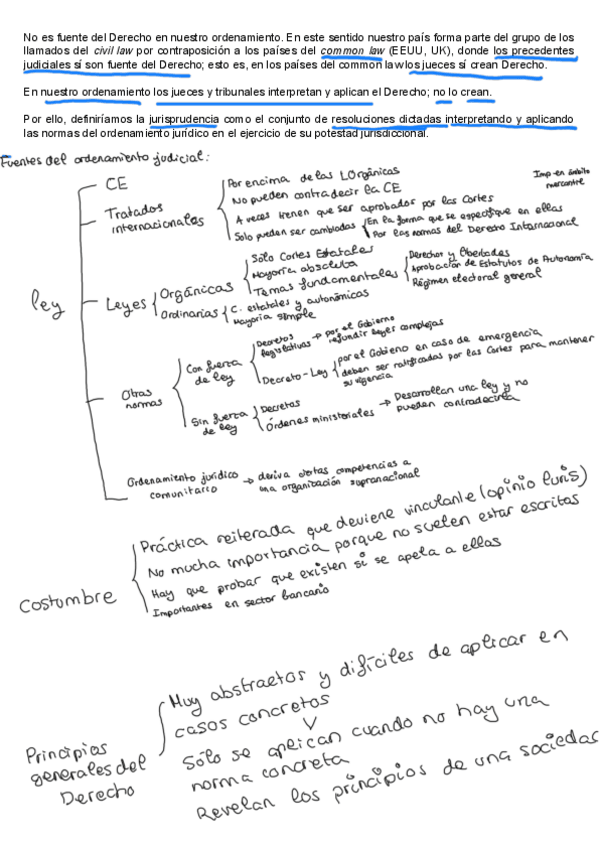 No es fuente del Derecho en nuestro ordenamiento. En este sentido nuestro país forma parte del grupo de los
llamados del civil law por contraposición a los países del common law (EEUU, UK), donde los precedentes
judiciales sí son fuente del Derecho; esto es, en los países del common law los jueces sí crean Derecho.
En nuestro ordenamiento los jueces y tribunales interpretan y aplican el Derecho; no lo crean.
Por ello, definiríamos la jurisprudencia como el conjunto de resoluciones dictadas interpretando y aplicando
las normas del ordenamiento jurídico en el ejercicio de su potestad jurisdiccional.
Fuentes del ordenamiento judicial:
ley
CE
Tratados
internacionales
Por encima de las LOrgánicas
No pueden contradecir la CE
A veces tienen que ser aprobador por las Cortes
Solo pueden ser cambiadas
En la forma que se especifique en ellas
Por las normas del Derecho Internacional
Imp en ámbito
mercantil
Leyes
Orgánicas
Sólo Cortes Estatales
Mayoría absoluta
Temas fundamentales
Derechos y libertades
Aprobación de Estatutos de Autonomía
Régimen electoral general
Ordinarias
C. estatales y autonómicas
Mayoría simple
Otras
normas
Con fuerza
de ley
Decretos
legislativos → por el Gobierno
refundir leyes complejas
Decreto-Ley
por el Gobieno en caso de emergencia
deben ser ratificadas por las Cortes para mantener
su vigencia
Sin fuerza
de ley
Decretos
Órdenes ministeriales → Desarrollan una ley y no
pueden contradecirla
Ordenamiento jurídico
comunitario → deriva ciertas competencias a
una organización supranacional
Costumbre
Práctica reiterada que deviene vinculante (opinio Iuris)
No mucha importancia porque no suelen estar escritas
Hay que probar que existen si se apela a ellas
Importantes en sector bancario
Principios
generales del
Derecho
Muy abstractos y difíciles de aplicar en
casos concretos
Sólo se aplican cuando no hay una
norma concreta
Revelan los principios de una sociedad